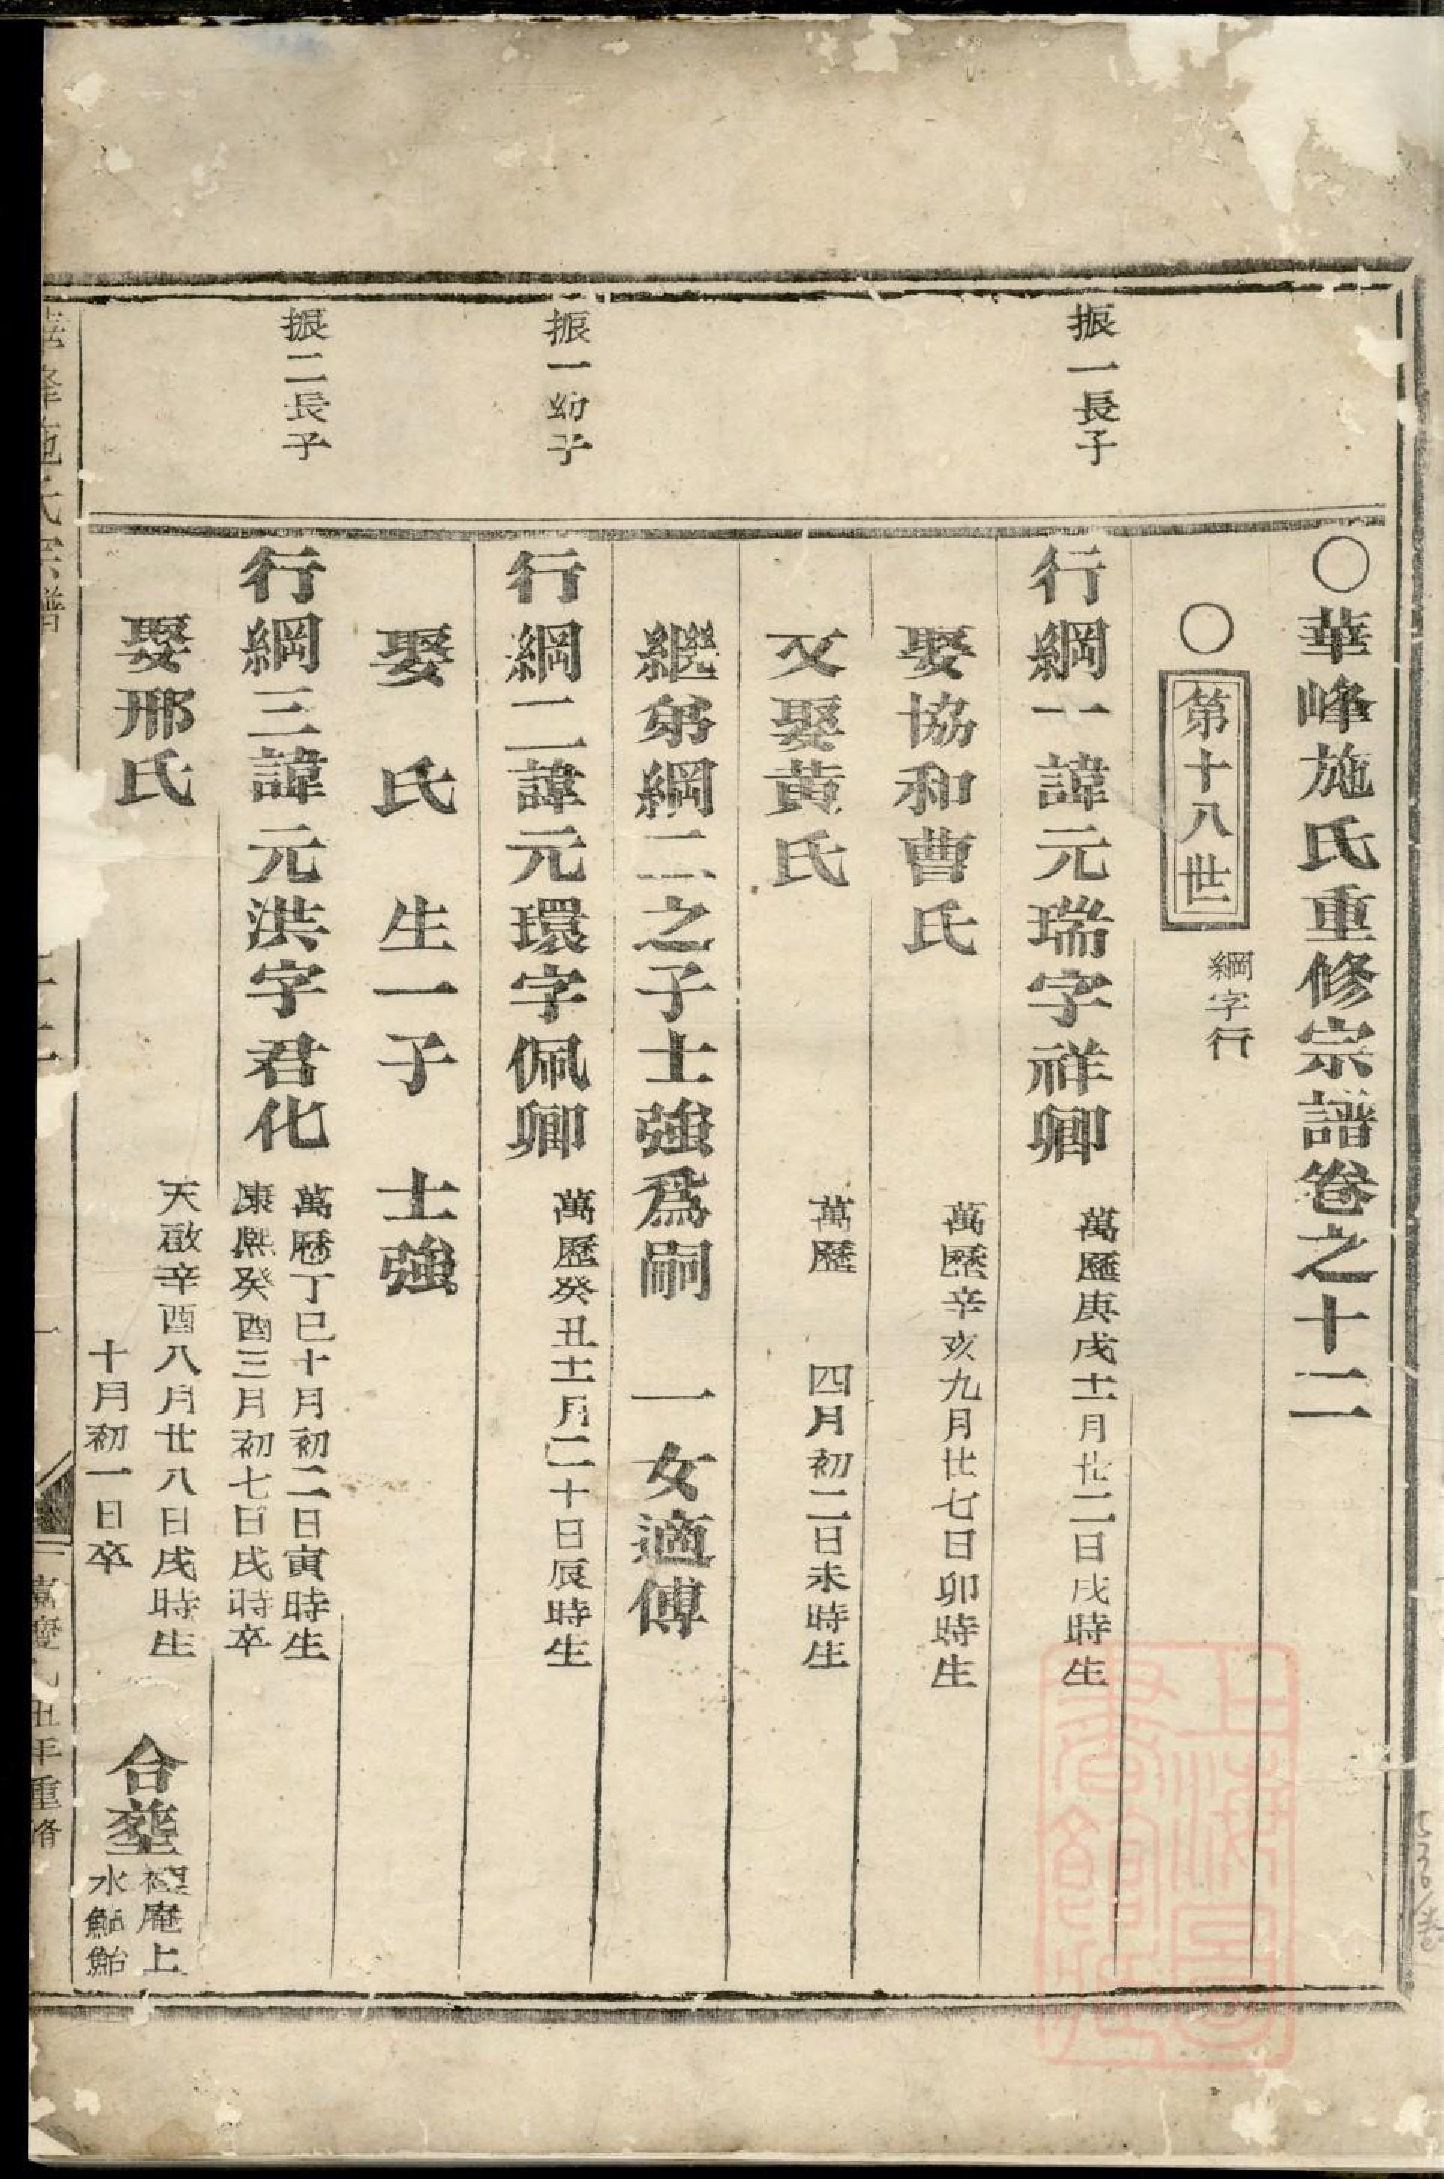 ○華峰施氏重修宗譜卷之十二
○第十八世 綱字行
振一長子
行綱一諱元瑞字祥卿 萬歷庚戌十一月廿二日戌時生
娶協和曹氏 萬歷辛亥九月廿七日卯時生
又娶黄氏 萬歷 四月初二日未時生
繼弟綱二之子士強爲嗣 一女適傅
振一幼子
行綱二諱元環字佩卿 萬歷癸丑十一月二十日辰時生
娶 氏 生一子 士強
振二長子
行綱三諱元洪字君化 萬歷丁巳十月初二日寅時生
康熙癸酉三月初七日戌時卒
娶邢氏 天啟辛酉八月廿八日戌時生
十月初一日卒
合塟 庵上
水鮎鮐
華峰施氏宗譜
丑年重脩
上海圖書館藏